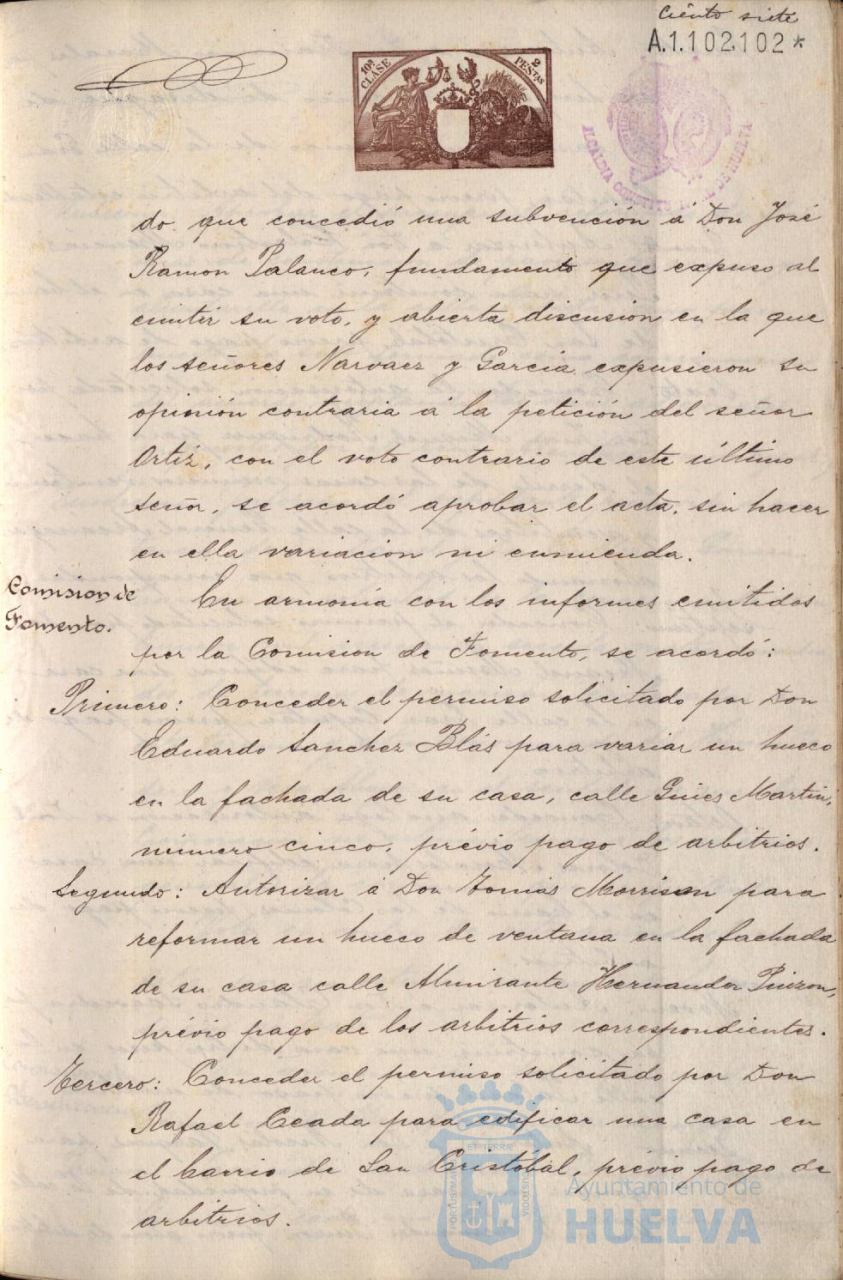 Ciento siete
A.1.102.102*
10ª CLASE 2 PESTAS
ALCALDIA DE HUELVA
do que concedió una subvención á Don José
Ramon Palanco, fundamento que expuso al
emitir su voto, y abierta discusión en la que
los señores Narvaez y Garcia expusieron su
opinión contraria á la petición del señor
Ortiz, con el voto contrario de este último
señor, se acordó aprobar el acta, sin hacer
en ella variación ni enmienda.
Comision de
Fomento.
En armonía con los informes emitidos
por la Comision de Fomento, se acordó:
Primero: Conceder el permiso solicitado por Don
Eduardo Sanchez Blás para variar un hueco
en la fachada de su casa, calle Gines Martin,
número cinco, prévio pago de arbitrios.
Segundo: Autorizar á Don Tomás Morrison para
reformar un hueco de ventana en la fachada
de su casa calle Almirante Hernandez Pinzon,
prévio pago de los arbitrios correspondientes.
Tercero: Conceder el permiso solicitado por Don
Rafael Ceada para edificar una casa en
el barrio de San Cristóbal, prévio pago de
arbitrios.
Ayuntamiento de
HUELVA